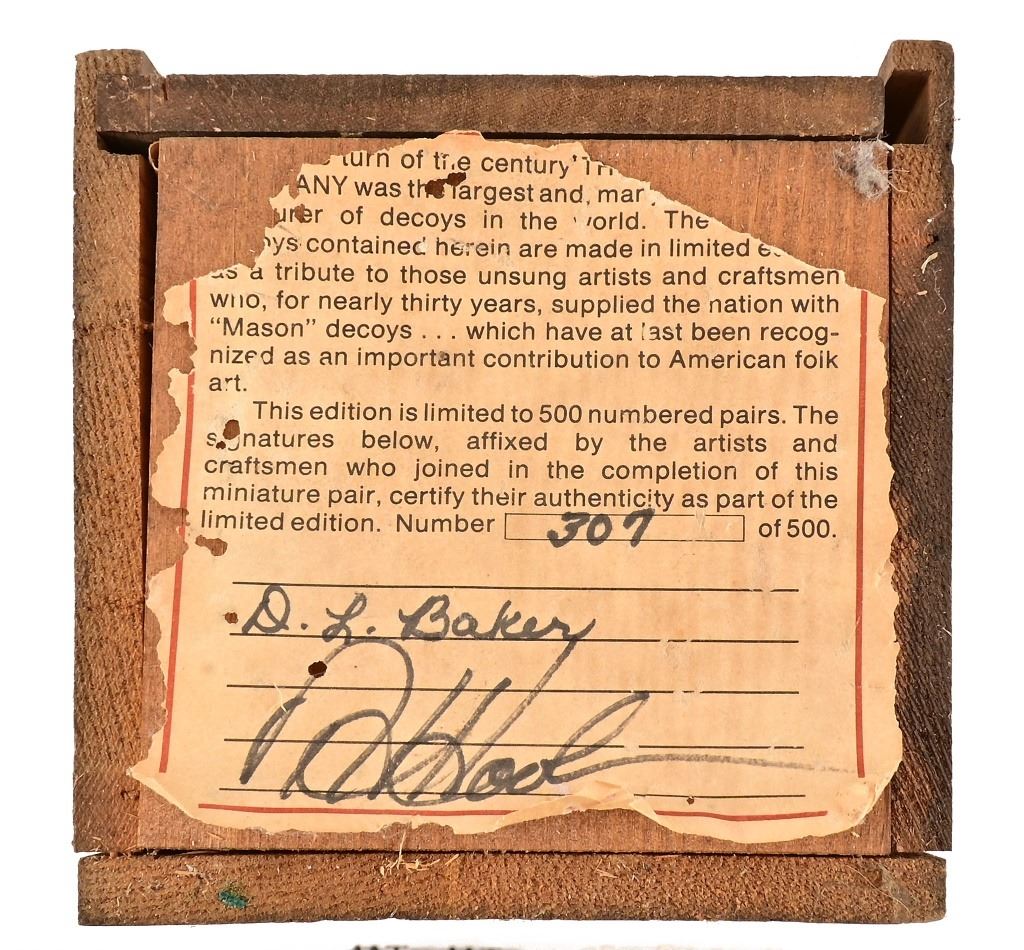 turn of the century TH
ANY was the largest and, man
urer of decoys in the world. The
oys contained herein are made in limited e
as a tribute to those unsung artists and craftsmen
who, for nearly thirty years, supplied the nation with
"Mason" decoys . . . which have at last been recog-
nized as an important contribution to American folk
art.
This edition is limited to 500 numbered pairs. The
signatures below, affixed by the artists and
craftsmen who joined in the completion of this
miniature pair, certify their authenticity as part of the
limited edition. Number 307 of 500.
D. L. Baker